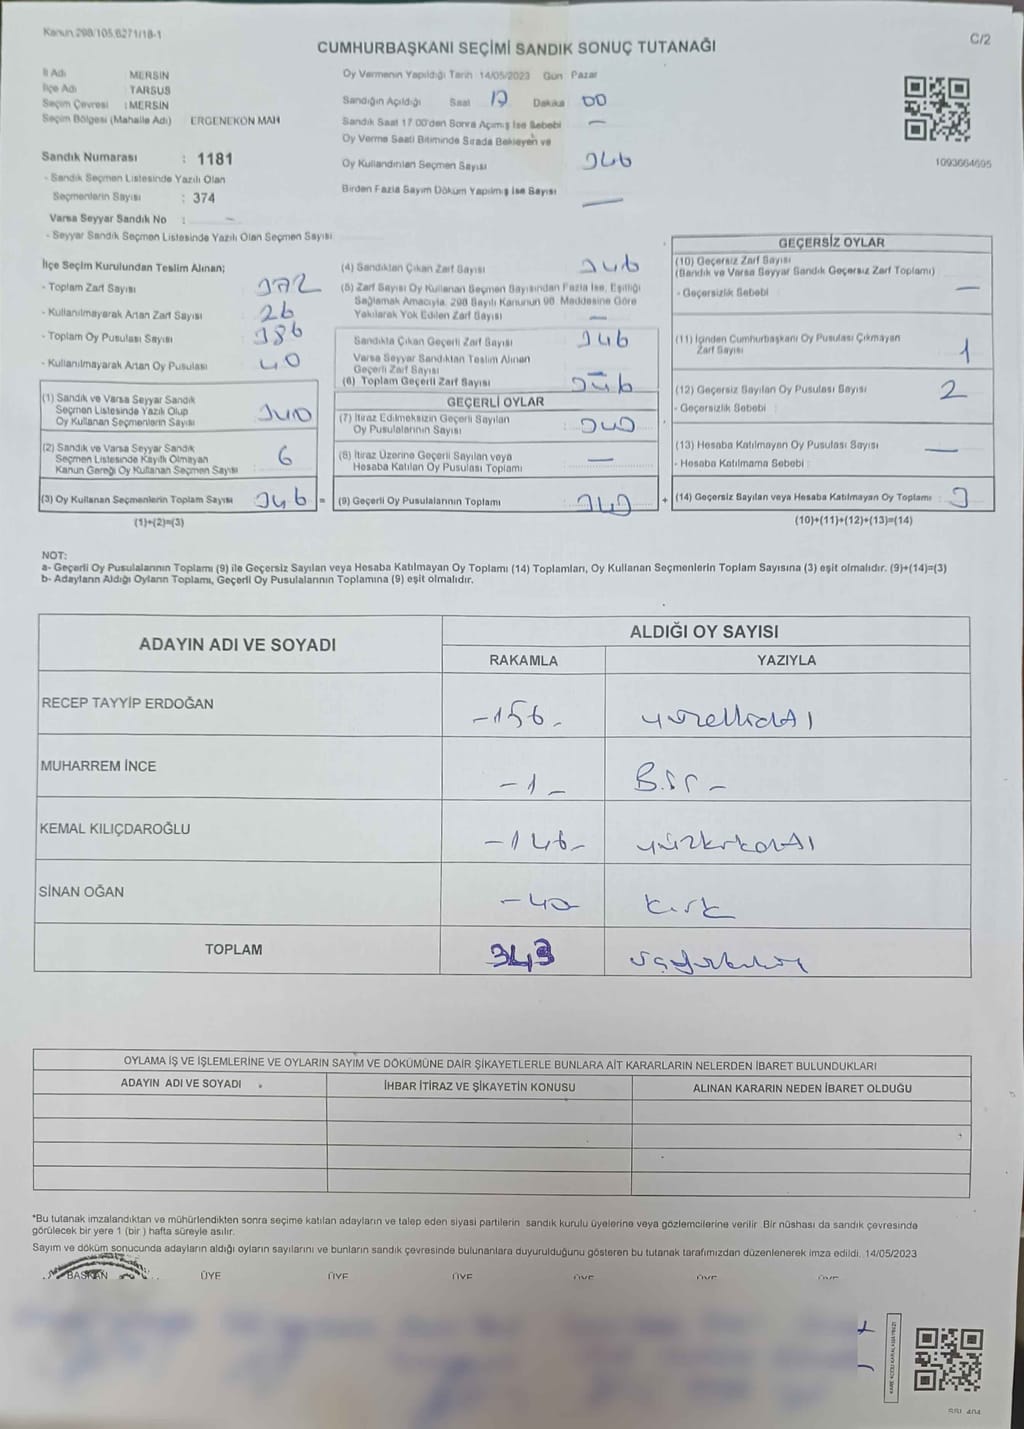 Kanun 298/105.6271/18-1
C/2
CUMHURBAŞKANI SEÇİMİ SANDIK SONUÇ TUTANAĞI
İl Adı MERSİN
İlçe Adı TARSUS
Seçim Çevresi : MERSİN
Seçim Bölgesi (Mahalle Adı) ERGENEKON MAH
Sandık Numarası : 1181
- Sandık Seçmen Listesinde Yazılı Olan
Seçmenlerin Sayısı : 374
Varsa Seyyar Sandık No : -
- Seyyar Sandık Seçmen Listesinde Yazılı Olan Seçmen Sayısı
Oy Vermenin Yapıldığı Tarih 14/05/2023 Gün Pazar
Sandığın Açıldığı Saat 17 Dakika 00
Sandık Saat 17.00'den Sonra Açımış İse Sebebi -
Oy Verme Saati Bitiminde Sırada Bekleyen ve
Oy Kullandırılan Seçmen Sayısı 346
Birden Fazla Sayım Döküm Yapılmış İse Sayısı -
1093664695
İlçe Seçim Kurulundan Teslim Alınan;
- Toplam Zarf Sayısı 372
- Kullanılmayarak Artan Zarf Sayısı 26
- Toplam Oy Pusulası Sayısı 386
- Kullanılmayarak Artan Oy Pusulası 40
(1) Sandık ve Varsa Seyyar Sandık
Seçmen Listesinde Yazılı Olup
Oy Kullanan Seçmenlerin Sayısı 340
(2) Sandık ve Varsa Seyyar Sandık
Seçmen Listesinde Kayıtlı Olmayan
Kanun Gereği Oy Kullanan Seçmen Sayısı 6
(3) Oy Kullanan Seçmenlerin Toplam Sayısı 346 =
(1)+(2)=(3)
(4) Sandıktan Çıkan Zarf Sayısı 346
(5) Zarf Sayısı Oy Kullanan Seçmen Sayısından Fazla İse, Eşitliği
Sağlamak Amacıyla, 298 Sayılı Kanunun 98. Maddesine Göre
Yakılarak Yok Edilen Zarf Sayısı -
Sandıkta Çıkan Geçerli Zarf Sayısı 346
Varsa Seyyar Sandıktan Teslim Alınan
Geçerli Zarf Sayısı -
(6) Toplam Geçerli Zarf Sayısı 346
GEÇERLİ OYLAR
(7) İtiraz Edilmeksizin Geçerli Sayılan
Oy Pusulalarının Sayısı
(8) İtiraz Üzerine Geçerli Sayılan veya
Hesaba Katılan Oy Pusulası Toplamı -
(9) Geçerli Oy Pusulalarının Toplamı 343 +
GEÇERSİZ OYLAR
(10) Geçersiz Zarf Sayısı
(Sandık ve Varsa Seyyar Sandık Geçersiz Zarf Toplamı)
- Geçersizlik Sebebi -
(11) İçinden Cumhurbaşkanı Oy Pusulası Çıkmayan
Zarf Sayısı 1
(12) Geçersiz Sayılan Oy Pusulası Sayısı 2
- Geçersizlik Sebebi
(13) Hesaba Katılmayan Oy Pusulası Sayısı -
- Hesaba Katılmama Sebebi
(14) Geçersiz Sayılan veya Hesaba Katılmayan Oy Toplamı : 3
(10)+(11)+(12)+(13)=(14)
NOT:
a- Geçerli Oy Pusulalarının Toplamı (9) ile Geçersiz Sayılan veya Hesaba Katılmayan Oy Toplamı (14) Toplamları, Oy Kullanan Seçmenlerin Toplam Sayısına (3) eşit olmalıdır. (9)+(14)=(3)
b- Adayların Aldığı Oyların Toplamı, Geçerli Oy Pusulalarının Toplamına (9) eşit olmalıdır.
ADAYIN ADI VE SOYADI ALDIĞI OY SAYISI
RAKAMLA YAZIYLA
RECEP TAYYİP ERDOĞAN -156- yüzellialtı
MUHARREM İNCE -1- Bir-
KEMAL KILIÇDAROĞLU -146- yüzkırkaltı
SİNAN OĞAN -40- kırk
TOPLAM 343 üçyüzkırküç
OYLAMA İŞ VE İŞLEMLERİNE VE OYLARIN SAYIM VE DÖKÜMÜNE DAİR ŞİKAYETLERLE BUNLARA AİT KARARLARIN NELERDEN İBARET BULUNDUKLARI
ADAYIN ADI VE SOYADI İHBAR İTİRAZ VE ŞİKAYETİN KONUSU ALINAN KARARIN NEDEN İBARET OLDUĞU
*Bu tutanak imzalandıktan ve mühürlendikten sonra seçime katılan adayların ve talep eden siyasi partilerin sandık kurulu üyelerine veya gözlemcilerine verilir Bir nüshası da sandık çevresinde
görülecek bir yere 1 (bir) hafta süreyle asılır.
Sayım ve döküm sonucunda adayların aldığı oyların sayılarını ve bunların sandık çevresinde bulunanlara duyurulduğunu gösteren bu tutanak tarafımızdan düzenlenerek imza edildi. 14/05/2023
BAŞKAN ÜYE ÜYE ÜYE ÜYE ÜYE ÜYE